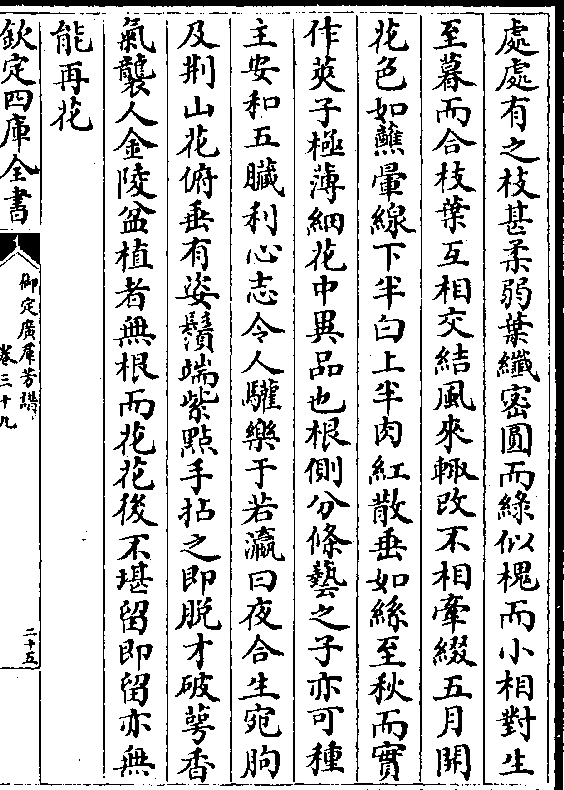 處處有之枝甚柔弱葉纖密圓而綠似槐而小相對生
至暮而合枝葉互相交結風來輙改不相牽綴五月開
花色如蘸暈線下半白上半肉紅散垂如絲至秋而實
作莢子極薄細花中異品也根側分條藝之子亦可種
主安和五臟利心志令人驩樂于若瀛曰夜合生宛朐
及荆山花俯垂有姿鬚端紫點手拈之即脱才破萼香
氣襲人金陵盆植者無根而花花後不堪留即留亦無
能再花
欽定四庫全書
御定廣羣芳譜
卷三十九
二十五